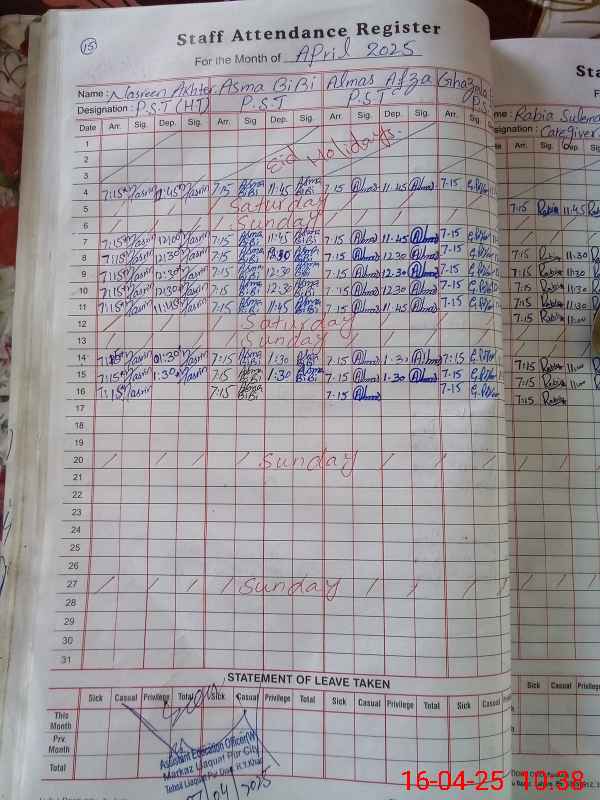 15
Staff Attendance Register
For the Month of April 2025
Name : Nasreen Akhter Asma BiBi Almas Afza Ghazala
Designation : P.S.T (HT) P.S.T P.S.T P.S
Date Arr. Sig. Dep. Sig. Arr. Sig. Dep. Sig. Arr. Sig. Dep. Sig. Arr. Sig.
1
2 Eid Holidays.
3
4 7:15 Nasrin 11:45 Nasrin 7:15 Asma BiBi 11:45 Asma BiBi 7:15 Almas 11:45 Almas 7:15
5 Saturday
6 Sunday
7 7:15 Nasrin 12:00 Nasrin 7:15 Asma BiBi 11:45 Asma BiBi 7:15 Almas 11:45 Almas 7:15
8 7:15 Nasrin 12:30 Nasrin 7:15 Asma BiBi 12:30 Asma BiBi 7:15 Almas 12:30 Almas 7:15
9 7:15 Nasrin 12:30 Nasrin 7:15 Asma BiBi 12:30 Asma BiBi 7:15 Almas 12:30 Almas 7:15
10 7:15 Nasrin 12:30 Nasrin 7:15 Asma BiBi 12:30 Asma BiBi 7:15 Almas 12:30 Almas 7:15
11 7:15 Nasrin 11:45 Nasrin 7:15 Asma BiBi 11:45 Asma BiBi 7:15 Almas 11:45 Almas 7:15
12 Saturday
13 Sunday
14 7:15 Nasrin 01:30 Nasrin 7:15 Asma BiBi 1:30 Asma BiBi 7:15 Almas 1:30 Almas 7:15
15 7:15 Nasrin 1:30 Nasrin 7:15 Asma BiBi 1:30 Asma BiBi 7:15 Almas 1:30 Almas 7:15
16 7:15 Nasrin 7:15 Asma BiBi 7:15 Almas 7:15
17
18
19
20 Sunday
21
22
23
24
25
26
27 Sunday
28
29
30
31
STATEMENT OF LEAVE TAKEN
Sick Casual Privilege Total Sick Casual Privilege Total Sick Casual Privilege Total Sick Casual
This Month
Prv. Month
Total
Assistant Education Officer(W)
Markaz Liaquat Pur City
Tehsil Liaquat Pur Distt. R.Y.Khan
/04/2025
Sta
F
me : Rabia Sulema
signation : Caregiver
Arr. Sig. Dep. Sig.
7:15 Rabia 11:45
7:15 Rabia 11:30
7:15 Rabia 11:30
7:15 Rabia 11:30
7:15 Rabia 11:30
7:15 Rabia 11:00
7:15 Rabia 11:00
7:15 Rabia 11:00
7:15 Rabia
Sick Casual Privilege
16-04-25 10:38